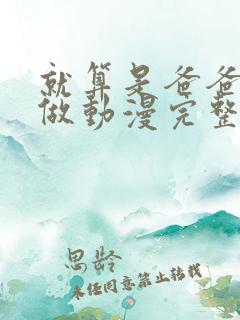 就算是爸爸
做動漫完整
思龄
未经同意禁止转载